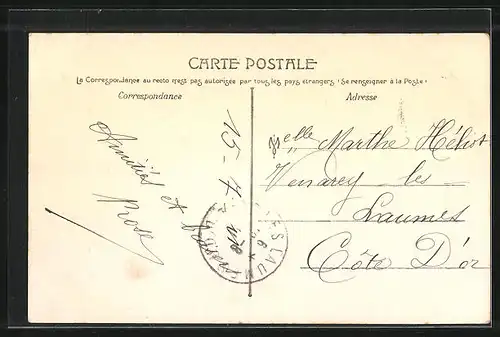 CARTE POSTALE
La Correspondance au recto n'est pas autorisée par tous les pays étrangers (Se renseigner à la Poste)
Correspondance
Adresse
15-4
Amitiés et
Rose
Melle Marthe Héliot
Venarey les
Laumes
Côte D'or
ES LAUM